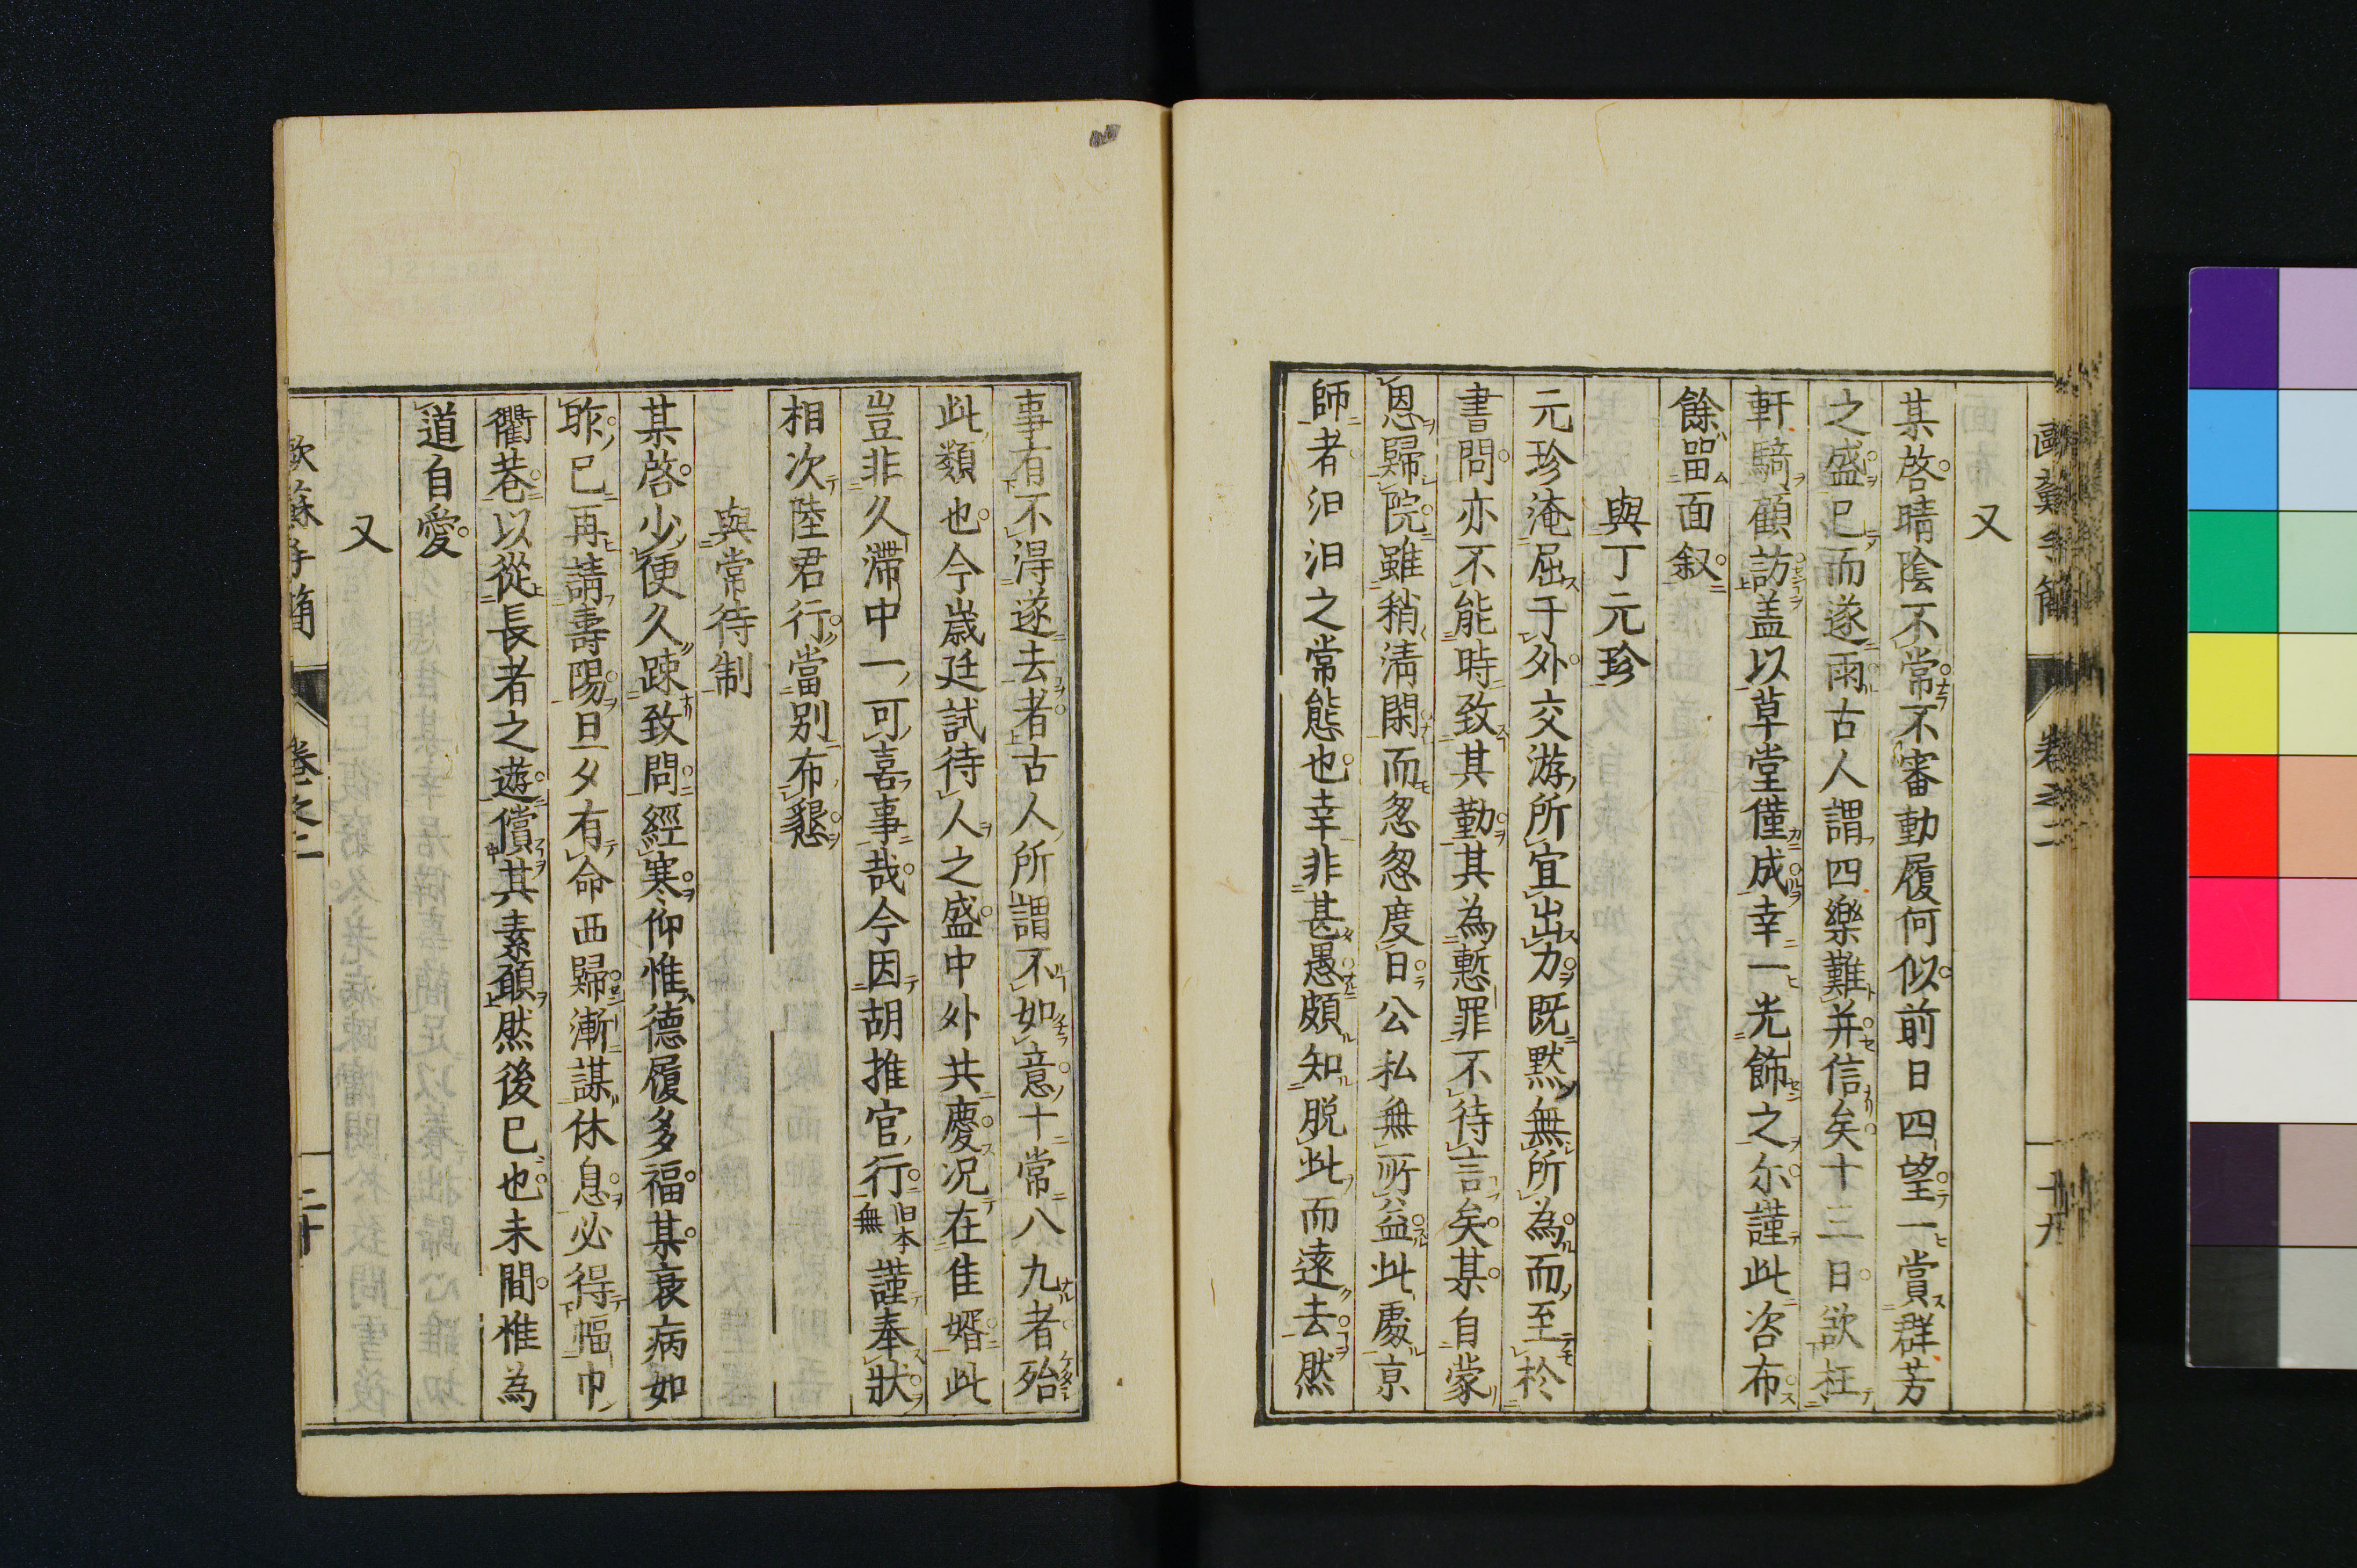 又
某啓晴陰不常不審動履何似前日四望一賞群芳
之盛已而遂雨古人謂四樂難并信矣十三日欲枉
軒騎顧訪盖以草堂僅成幸一光飾之尓謹此咨布
餘畱面叙
與丁元珍
元珍淹屈于外交游所宜出力既黙無所為而至於
書問亦不能時致其勤其為慙罪不待言矣某自蒙
恩歸院雖稍清閑而怱怱度日公私無所益此處京
師者汩汩之常態也幸非甚愚頗知脱此而遠去然
事有不得遂去者古人所謂不如意十常八九者殆
此類也今歳廷試待人之盛中外共慶况在隹婿此
豈非久滯中一可喜事哉今因胡推官行旧本無謹奉狀
相次陸君行當别布懇
與常待制
某啓少便久踈致問經寒仰惟德履多福某衰病如
昨已再請壽陽旦夕有命西歸漸謀休息必得幅巾
衢巷以從長者之遊償其素願然後已也未間惟為
道自愛
又
歐蘇手簡 卷之二 二十